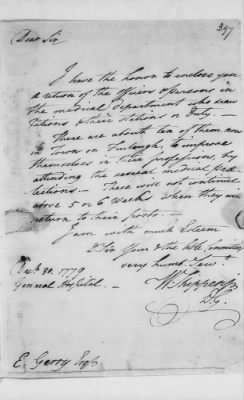 397
Dear Sir
I have the honor to enclose you
a return of the officers & persons in
the medical department who draw
rations & their stations or Duty. —
There are about ten of them now
in Town on Furlough, to improve
themselves in their professions, by
attending the several medical
lections. — These will not continue
above 5 or 6 weeks when they will
return to their posts. —
I am with much Esteem
D Sir Your & the Committee
very humb. Serv.t
W Shippen Jr
D.G.
30. 1779
General Hospital. —
E. Gerry Esqr